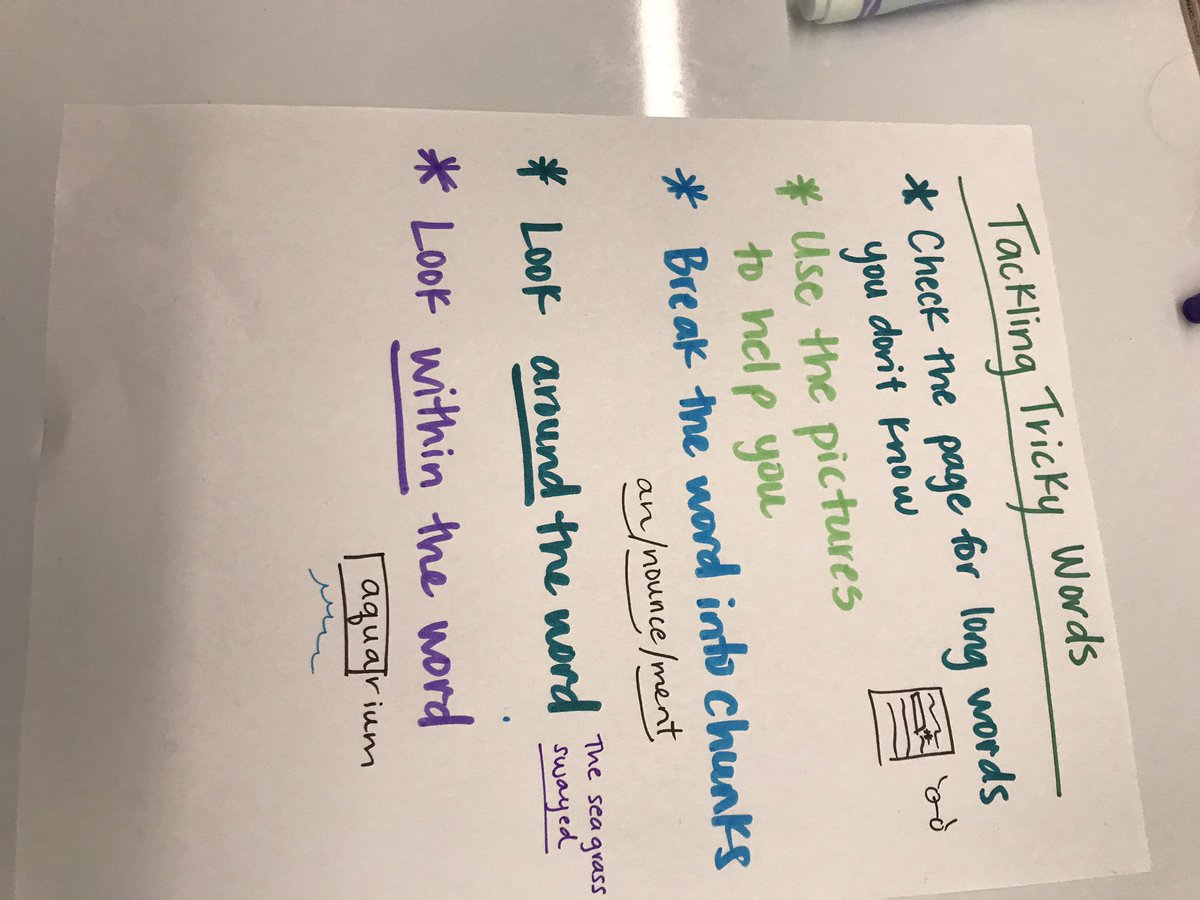 Tackling Tricky Words
* Check the page for long words
you don't know
* Use the pictures
to help you
* Break the word into chunks
an/nounce/ment
* Look around the word
The sea grass
swayed
* Look within the word
aquarium